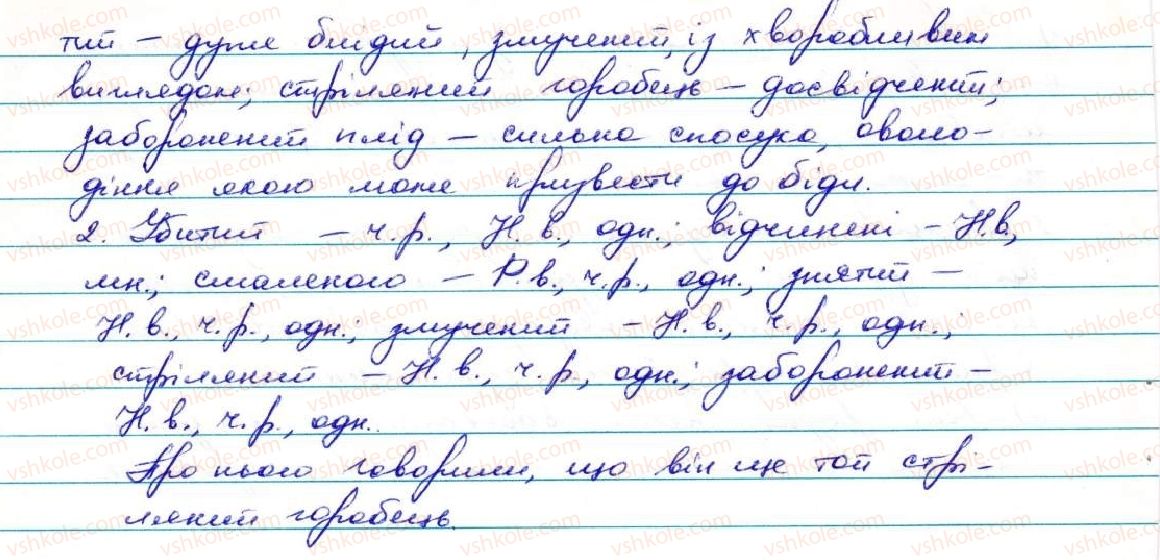 тий – дуже блідий, змучений, із хворобливим
виглядом; стріляний горобець – досвідчений;
заборонений плід – сильна спокуса, оволо-
діння якою може призвести до біди.
2. Убитий – ч.р., Н.в., одн.; відчинені – Н.в.,
мн.; смаленого – Р.в., ч.р., одн.; знятий –
Н.в., ч.р., одн.; змучений – Н.в., ч.р., одн.;
стріляний – Н.в., ч.р., одн.; заборонений –
Н.в., ч.р., одн.
Про нього говорили, що він ще той стрі-
ляний горобець.